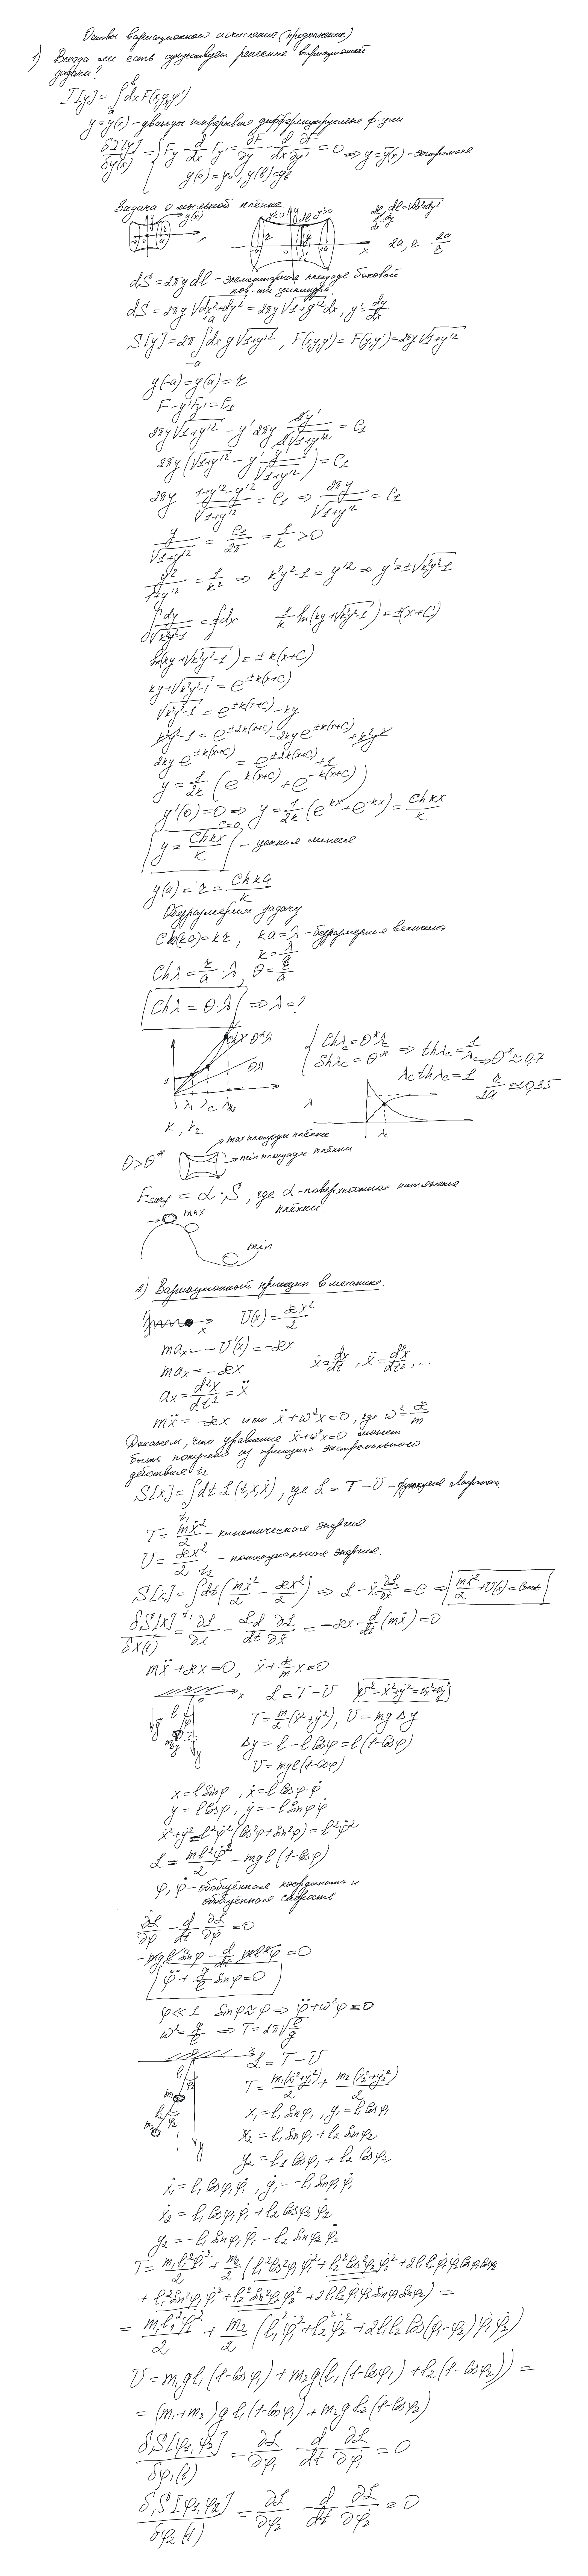 Основы вариационного исчисления (продолжение)
1) Всегда ли есть существует решение вариационной
задачи?
I[y] = ∫ₐᵇ dx F(x,y,y')
y = y(x) - дважды непрерывно дифференцируемые ф-ции
δI[y]/δy(x) = { F_y - d/dx F_y' = ∂F/∂y - d/dx ∂F/∂y' = 0 ⇒ y = y(x) - экстремаль
y(a) = y_a, y(b) = y_b
Задача о мыльной плёнке.
y(x)
dl = √(dx²+dy²)
2a, r 2a/r
dS = 2πy dl - элементарная площадь боковой
пов-ти цилиндра.
dS = 2πy √(dx²+dy²) = 2πy √(1+y'²) dx, y' = dy/dx
S[y] = 2π ∫₋ₐᵃ dx y √(1+y'²), F(x,y,y') = F(y,y') = 2πy √(1+y'²)
y(-a) = y(a) = r
F - y'F_y' = C₁
2πy √(1+y'²) - y' 2πy · 2y'/(2√(1+y'²)) = C₁
2πy (√(1+y'²) - y' y'/√(1+y'²)) = C₁
2πy (1+y'²-y'²)/√(1+y'²) = C₁ ⇒ 2πy/√(1+y'²) = C₁
y/√(1+y'²) = C₁/2π = 1/k > 0
y²/(1+y'²) = 1/k² ⇒ k²y²-1 = y'² ⇒ y' = ±√(k²y²-1)
∫ dy/√(k²y²-1) = ±∫dx 1/k ln(ky+√(k²y²-1)) = ±(x+C)
ln(ky+√(k²y²-1)) = ±k(x+C)
ky+√(k²y²-1) = e^(±k(x+C))
√(k²y²-1) = e^(±k(x+C)) - ky
k²y²-1 = e^(±2k(x+C)) - 2ky e^(±k(x+C)) + k²y²
2ky e^(±k(x+C)) = e^(±2k(x+C)) + 1
y = 1/2k (e^(k(x+C)) + e^(-k(x+C)))
y'(0) = 0 ⇒ y = 1/2k (e^(kx) + e^(-kx)) = ch kx/k
C=0
y = ch kx/k - цепная линия
y(a) = r = ch ka/k
Обезразмерим задачу
ch(ka) = kr, ka = λ - безразмерная величина
k = λ/a
ch λ = r/a · λ, θ = r/a
ch λ = θ·λ ⇒ λ = ?
chλ θ*λ
θλ
1
λ₁ λc λ₂ λ
k₁, k₂
{ ch λc = θ*λc
sh λc = θ* ⇒ th λc = 1/λc ⇒ θ* ≈ 0,7
λc th λc = 1 r/2a ≈ 0,35
λc
θ > θ*
max площади плёнки
min площади плёнки
E_surf = α·S, где α - поверхностное натяжение
плёнки.
max
min
2) Вариационный принцип в механике.
x
U(x) = æx²/2
ma_x = -U'(x) = -æx
ma_x = -æx ẋ = dx/dt, ẍ = d²x/dt², ...
a_x = d²x/dt² = ẍ
mẍ = -æx или ẍ+ω²x = 0, где ω² = æ/m
Докажем, что уравнение ẍ+ω²x=0 может
быть получено из принципа экстремального
действия
S[x] = ∫ₜ₁ᵗ² dt L(t,x,ẋ), где L = T - U - функция Лагранжа
T = mẋ²/2 - кинетическая энергия
U = æx²/2 - потенциальная энергия.
S[x] = ∫ₜ₁ᵗ² dt (mẋ²/2 - æx²/2) ⇒ L - ẋ ∂L/∂ẋ = C ⇒ mẋ²/2 + U(x) = const
δS[x]/δx(t) = ∂L/∂x - d/dt ∂L/∂ẋ = -æx - d/dt (mẋ) = 0
mẍ + æx = 0; ẍ + æ/m x = 0
0 x
L = T - U v² = ẋ²+ẏ² = v_x²+v_y²
T = m/2 (ẋ²+ẏ²), U = mgΔy
Δy = l - l cosφ = l(1-cosφ)
U = mgl(1-cosφ)
x = l sinφ, ẋ = l cosφ·φ̇
y = l cosφ, ẏ = -l sinφ φ̇
ẋ²+ẏ² = l²φ̇²(cos²φ+sin²φ) = l²φ̇²
L = ml²φ̇²/2 - mgl(1-cosφ)
φ, φ̇ - обобщённая координата и
обобщённая скорость
∂L/∂φ - d/dt ∂L/∂φ̇ = 0
-mgl sinφ - d/dt ml²φ̇ = 0
φ̈ + g/l sinφ = 0
φ ≪ 1 sinφ ≈ φ ⇒ φ̈+ω²φ = 0
ω² = g/l ⇒ T = 2π√(l/g)
L = T - U
T = m₁(ẋ₁²+ẏ₁²)/2 + m₂(ẋ₂²+ẏ₂²)/2
x₁ = l₁ sinφ₁, y₁ = l₁ cosφ₁
x₂ = l₁ sinφ₁ + l₂ sinφ₂
y₂ = l₁ cosφ₁ + l₂ cosφ₂
ẋ₁ = l₁ cosφ₁ φ̇₁, ẏ₁ = -l₁ sinφ₁ φ̇₁
ẋ₂ = l₁ cosφ₁ φ̇₁ + l₂ cosφ₂ φ̇₂
ẏ₂ = -l₁ sinφ₁ φ̇₁ - l₂ sinφ₂ φ̇₂
T = m₁l₁²φ̇₁²/2 + m₂/2 (l₁² cos²φ₁ φ̇₁² + l₂² cos²φ₂ φ̇₂² + 2l₁l₂ φ̇₁φ̇₂ cosφ₁ cosφ₂
+ l₁² sin²φ₁ φ̇₁² + l₂² sin²φ₂ φ̇₂² + 2l₁l₂ φ̇₁φ̇₂ sinφ₁ sinφ₂) =
= m₁l₁²φ̇₁²/2 + m₂/2 (l₁²φ̇₁² + l₂²φ̇₂² + 2l₁l₂ cos(φ₁-φ₂) φ̇₁φ̇₂)
U = m₁gl₁(1-cosφ₁) + m₂g(l₁(1-cosφ₁) + l₂(1-cosφ₂)) =
= (m₁+m₂)gl₁(1-cosφ₁) + m₂gl₂(1-cosφ₂)
δS[φ₁,φ₂]/δφ₁(t) = ∂L/∂φ₁ - d/dt ∂L/∂φ̇₁ = 0
δS[φ₁,φ₂]/δφ₂(t) = ∂L/∂φ₂ - d/dt ∂L/∂φ̇₂ = 0